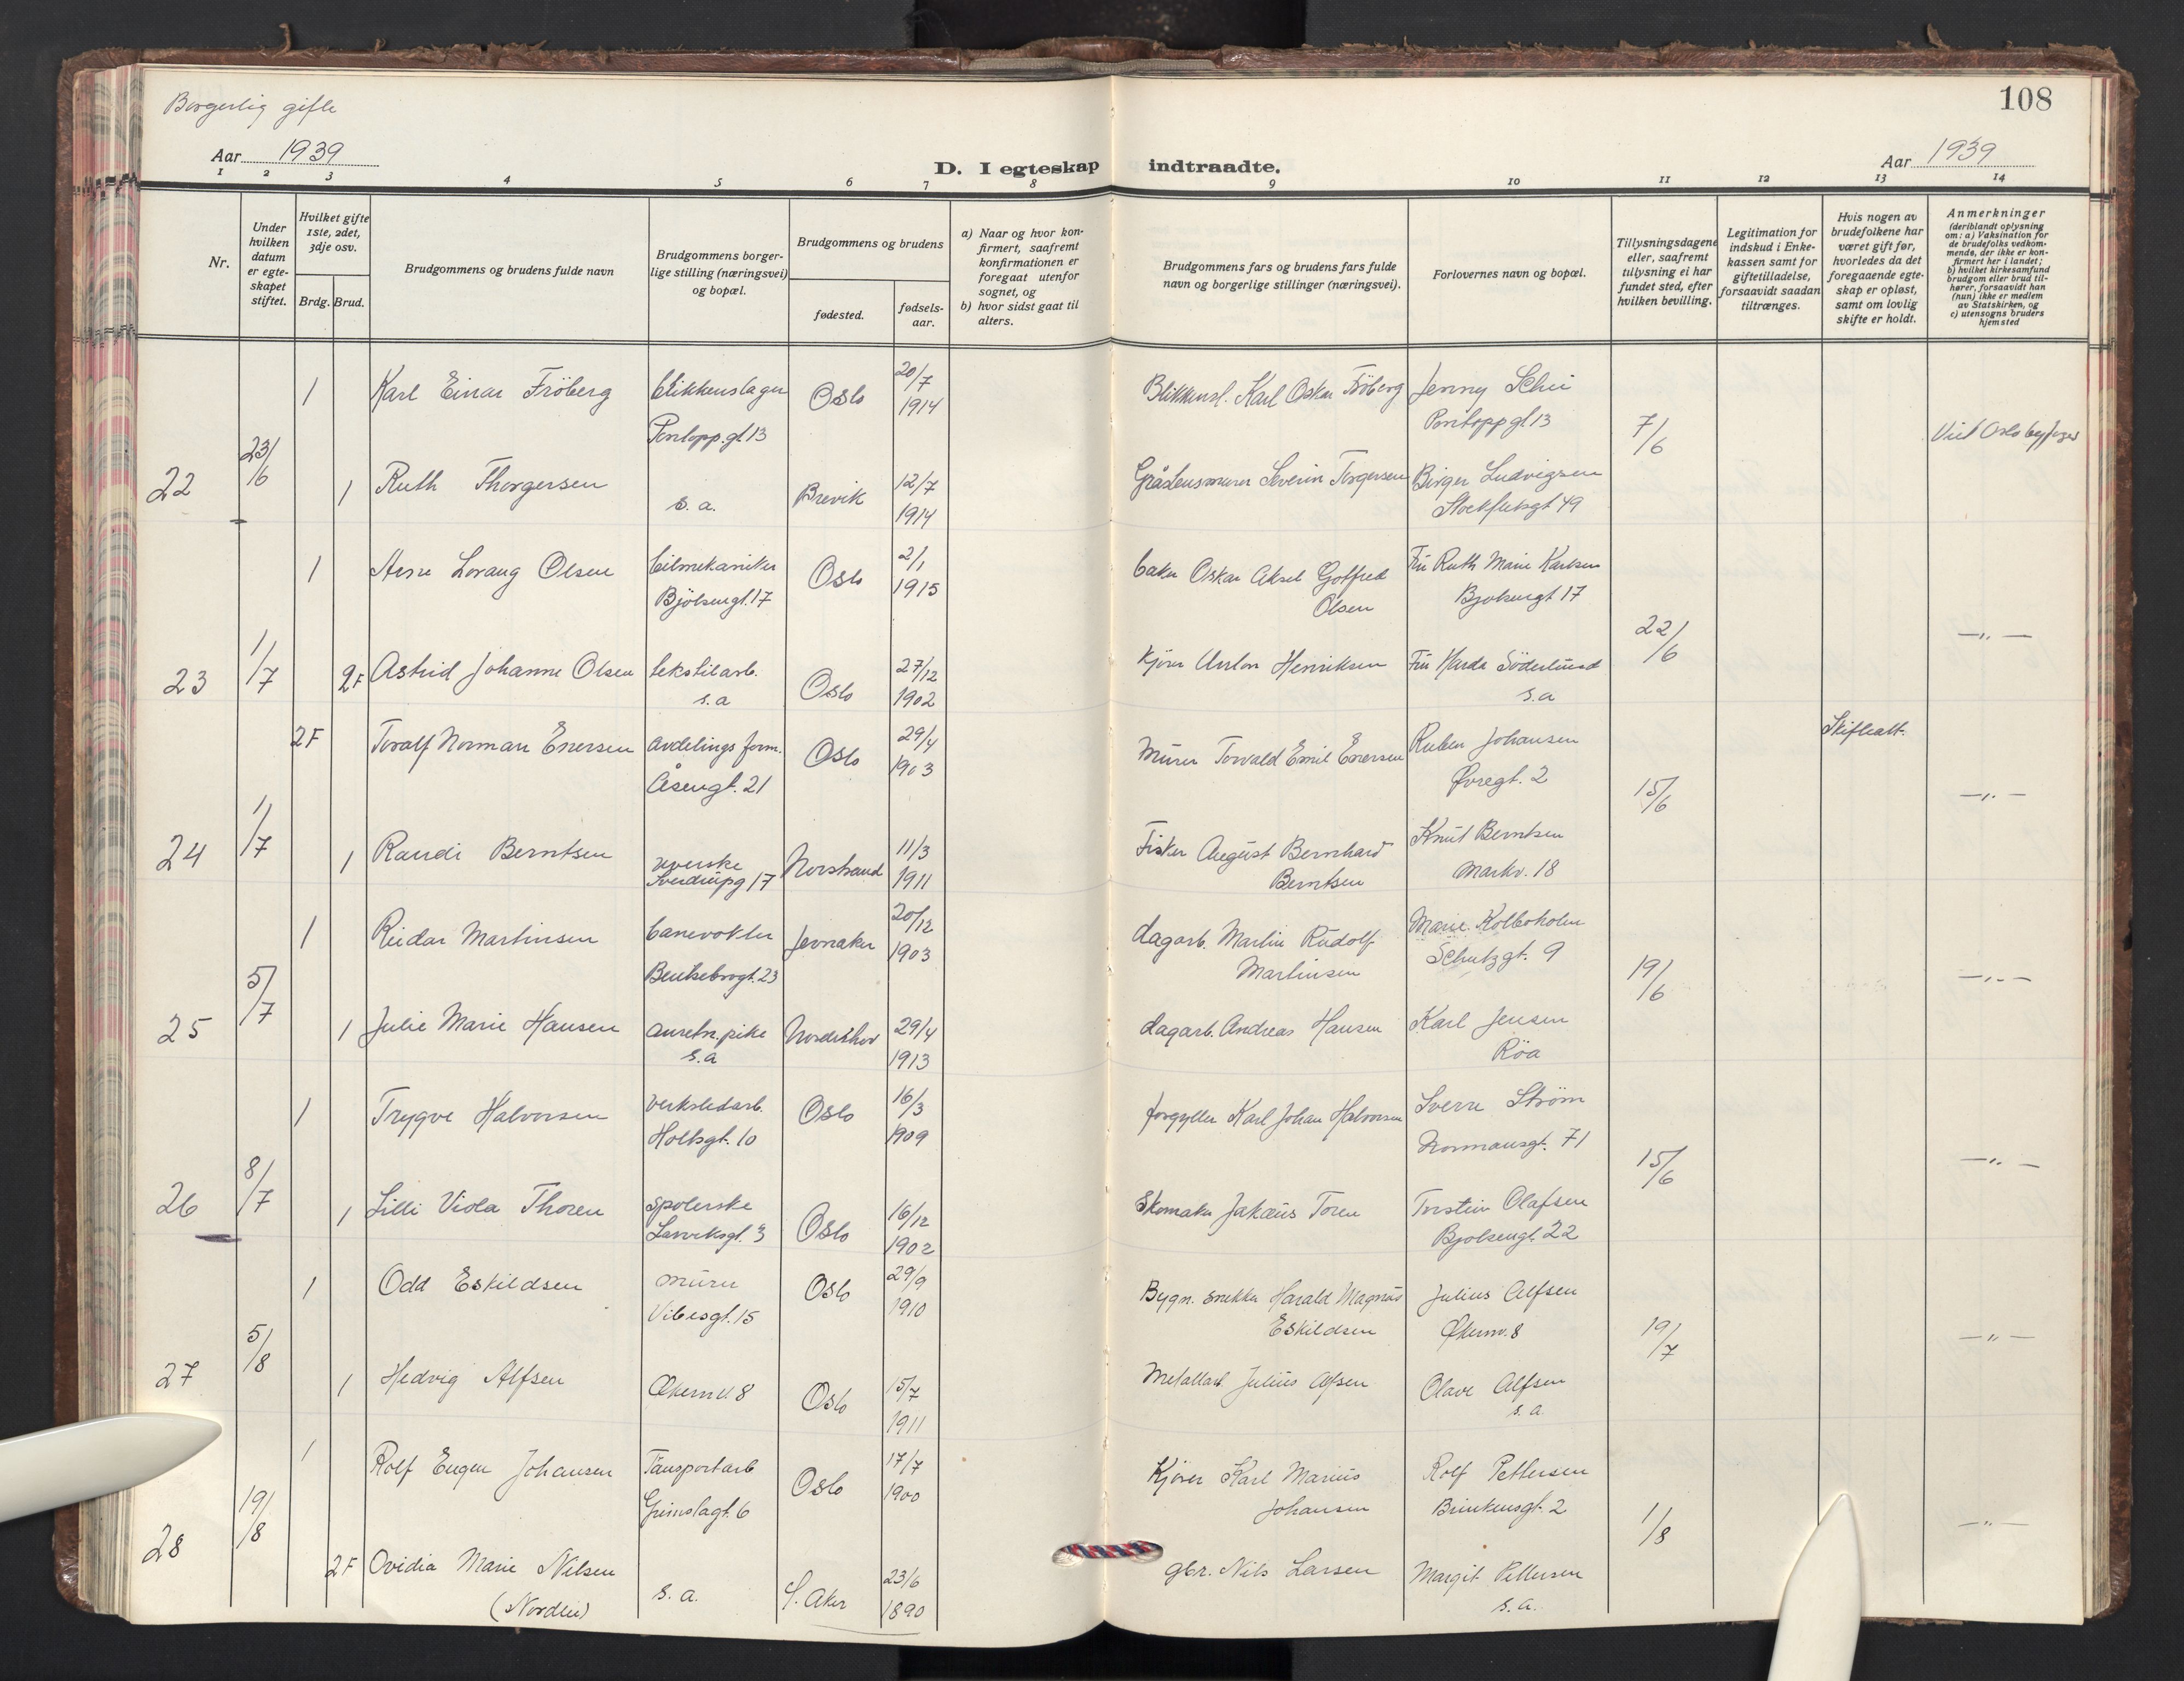 Borgerlig gifte
108
Aar 1939
D. I egteskap indtraadte.
Aar 1939
1 2 3 4 5 6 7 8 9 10 11 12 13 14
Nr.
Under hvilken datum er egteskapet stiftet.
Hvilket gifte 1ste, 2det, 3dje osv.
Brdg. Brud.
Brudgommens og brudens fulde navn
Brudgommens borgerlige stilling (næringsvei) og bopæl.
Brudgommens og brudens
fødested.
fødselsaar.
a) Naar og hvor konfirmert, saafremt konfirmationen er foregaat utenfor sognet, og
b) hvor sidst gaat til alters.
Brudgommens fars og brudens fars fulde navn og borgerlige stillinger (næringsvei).
Forlovernes navn og bopæl.
Tillysningsdagene eller, saafremt tillysning ei har fundet sted, efter hvilken bevilling.
Legitimation for indskud i Enkekassen samt for giftetilladelse, forsaavidt saadan tiltrænges.
Hvis nogen av brudefolkene har været gift før, hvorledes da det foregaaende egteskap er opløst, samt om lovlig skifte er holdt.
Anmerkninger (deriblandt oplysning om: a) Vaksination for de brudefolks vedkommende, der ikke er konfirmert her i landet; b) hvilket kirkesamfund brudgom eller brud tilhører, forsaavidt han (hun) ikke er medlem av Statskirken, og c) utensogns bruders hjemsted
22 23/6
1 Karl Einar Fröberg blikkenslager Pontopp.gt 13 Oslo 20/7 1914 Blikkensl. Karl Oskar Fröberg Jenny Schei Pontopp gt 13 7/6 Viet Oslo byfoged
1 Ruth Thorgersen s. a. Brevik 12/7 1914 Gråstensmurer Severin Torgersen Birger Ludvigsen Stockfletsgt 49
23 1/7
1 Arne Lorang Olsen bilmekaniker Bjölsengt. 17 Oslo 2/1 1915 baker Oskar Aksel Gotfred Olsen Fru Ruth Marie Karlsen Bjölsengt 17 22/6 —„—
2F Astrid Johanne Olsen tekstilarb. s.a Oslo 27/12 1902 Kjörer Anton Henriksen Fru Harda Söderlund s.a
24 1/7
2F Toralf Norman Enersen avdelings form. Åsengt. 21 Oslo 29/4 1903 Murer Torvald Emil Enersen Ruben Johansen Øvregt. 2 15/6 Skifteatt. —„—
1 Randi Berntsen veverske Sverdrupg 17 Norstrand 11/3 1911 Fisker August Bernhard Berntsen Knut Berntsen Markv. 18
25 5/7
1 Reidar Martinsen banevokter Bentsebrogt. 23 Jevnaker 20/12 1903 dagarb. Martin Rudolf Martinsen Marie Kolboholm Schutzgt. 9 19/6 —„—
1 Julie Marie Hansen anretn. pike s.a Norderhov 29/4 1913 dagarb. Andreas Hansen Karl Jensen Röa
26 8/7
1 Trygve Halvorsen verkstedarb. Holtsgt. 10 Oslo 16/3 1909 forgyller Karl Johan Halvorsen Sverre Strøm Normansgt. 71 15/6 —„—
1 Lilli Viola Thoren spolerske Larviksgt. 3 Oslo 16/12 1902 Skomaker Jakaus Toren Torstein Olafsen Bjolsengt. 22
27 5/8
1 Odd Eskildsen murer Vibesgt. 15 Oslo 29/9 1910 Bygn. snekker Harald Magnus Eskildsen Julius Alfsen Økernv. 8 19/7 —„—
1 Hedvig Alfsen Økernv. 8 Oslo 15/7 1911 Metallarb. Julius Alfsen Olave Alfsen s. a.
28 19/8
1 Rolf Eugen Johansen Tansportarb Grimslagt. 6 Oslo 17/7 1900 Kjörer Karl Marius Johansen Rolf Pettersen Brinkensgt. 2 1/8 —„—
2F Ovidia Marie Nilsen (Nordlie) s. a. Aker 23/6 1890 gbr. Nils Larsen Margit Pettersen s.a.